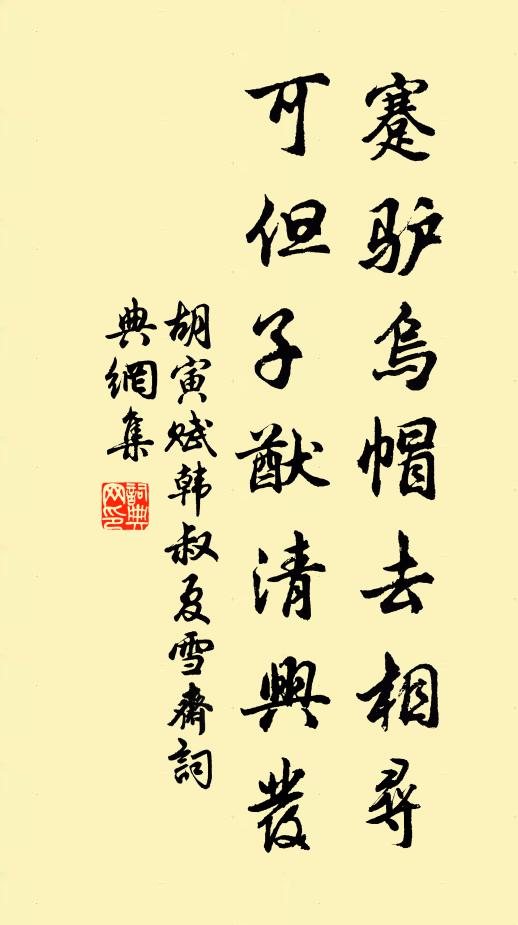 蹇驴乌帽去相寻
可但子猷清興發
胡寅赋韩叔夏雪齋詞
典網集
詞典
网印